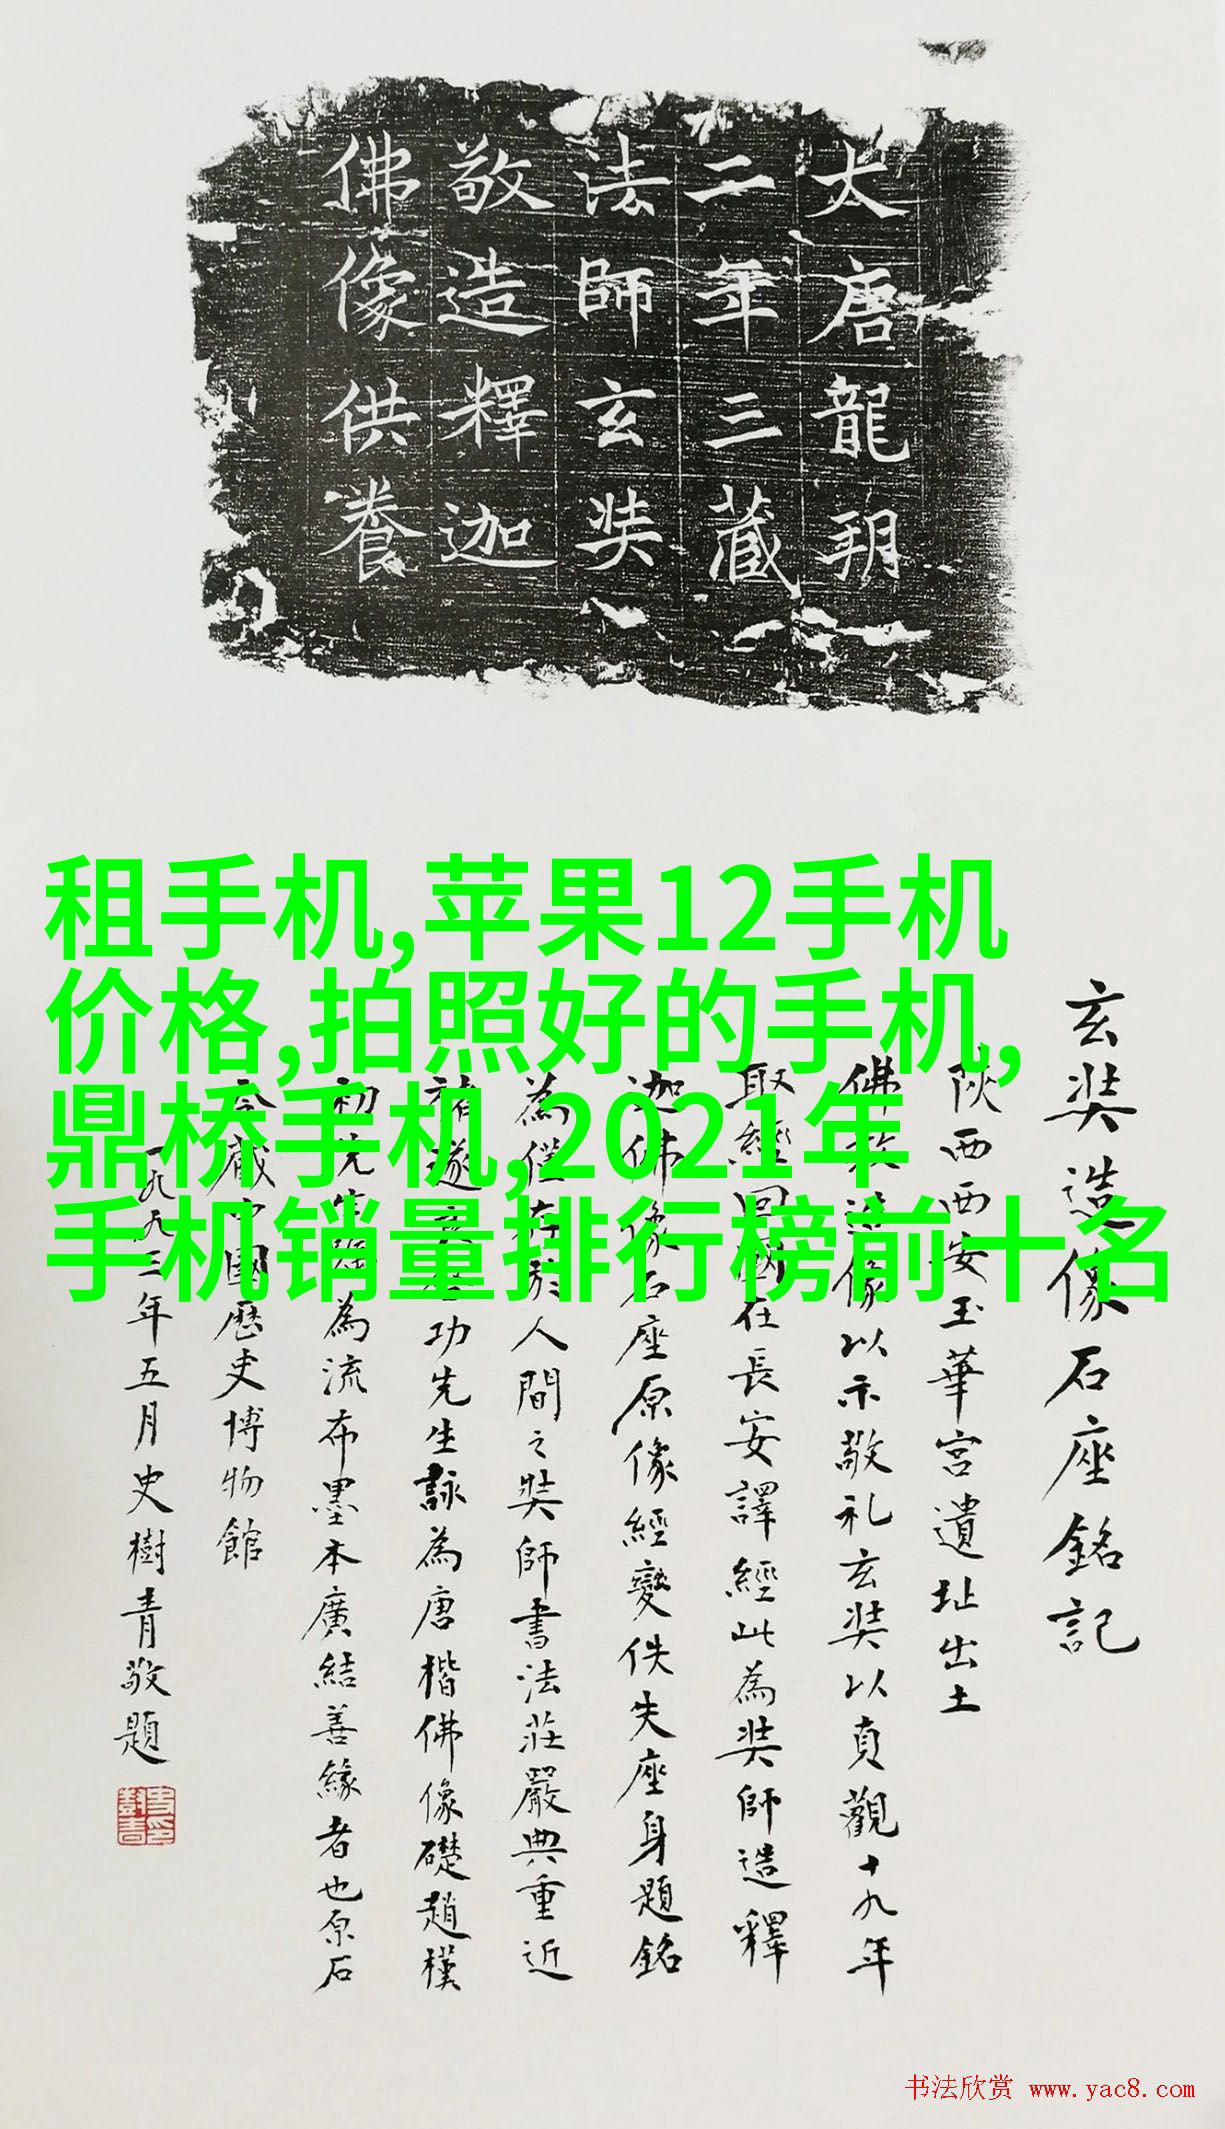 大唐龍朔
二年三藏
法師玄奘
敬造釋迦
佛像供養
租手机,苹果12手机
价格,拍照好的手机,
鼎桥手机,2021年
手机销量排行榜前十名
玄奘造像石座銘記
陝西西安玉華宮遺址出土
佛造像以示敬礼玄奘以貞觀十九年
取經回國在長安譯經此為奘師造釋
迦佛像石座原像經變佚失座身題銘
為僅存於人間之奘師書法莊嚴典重近
褚遂良功先生詠為唐楷佛像礎趙樸
初先生為流布墨本廣結善緣者也原石
今藏中國歷史博物館
一九九三年五月史樹青敬題
书法欣赏 www.yac8.com